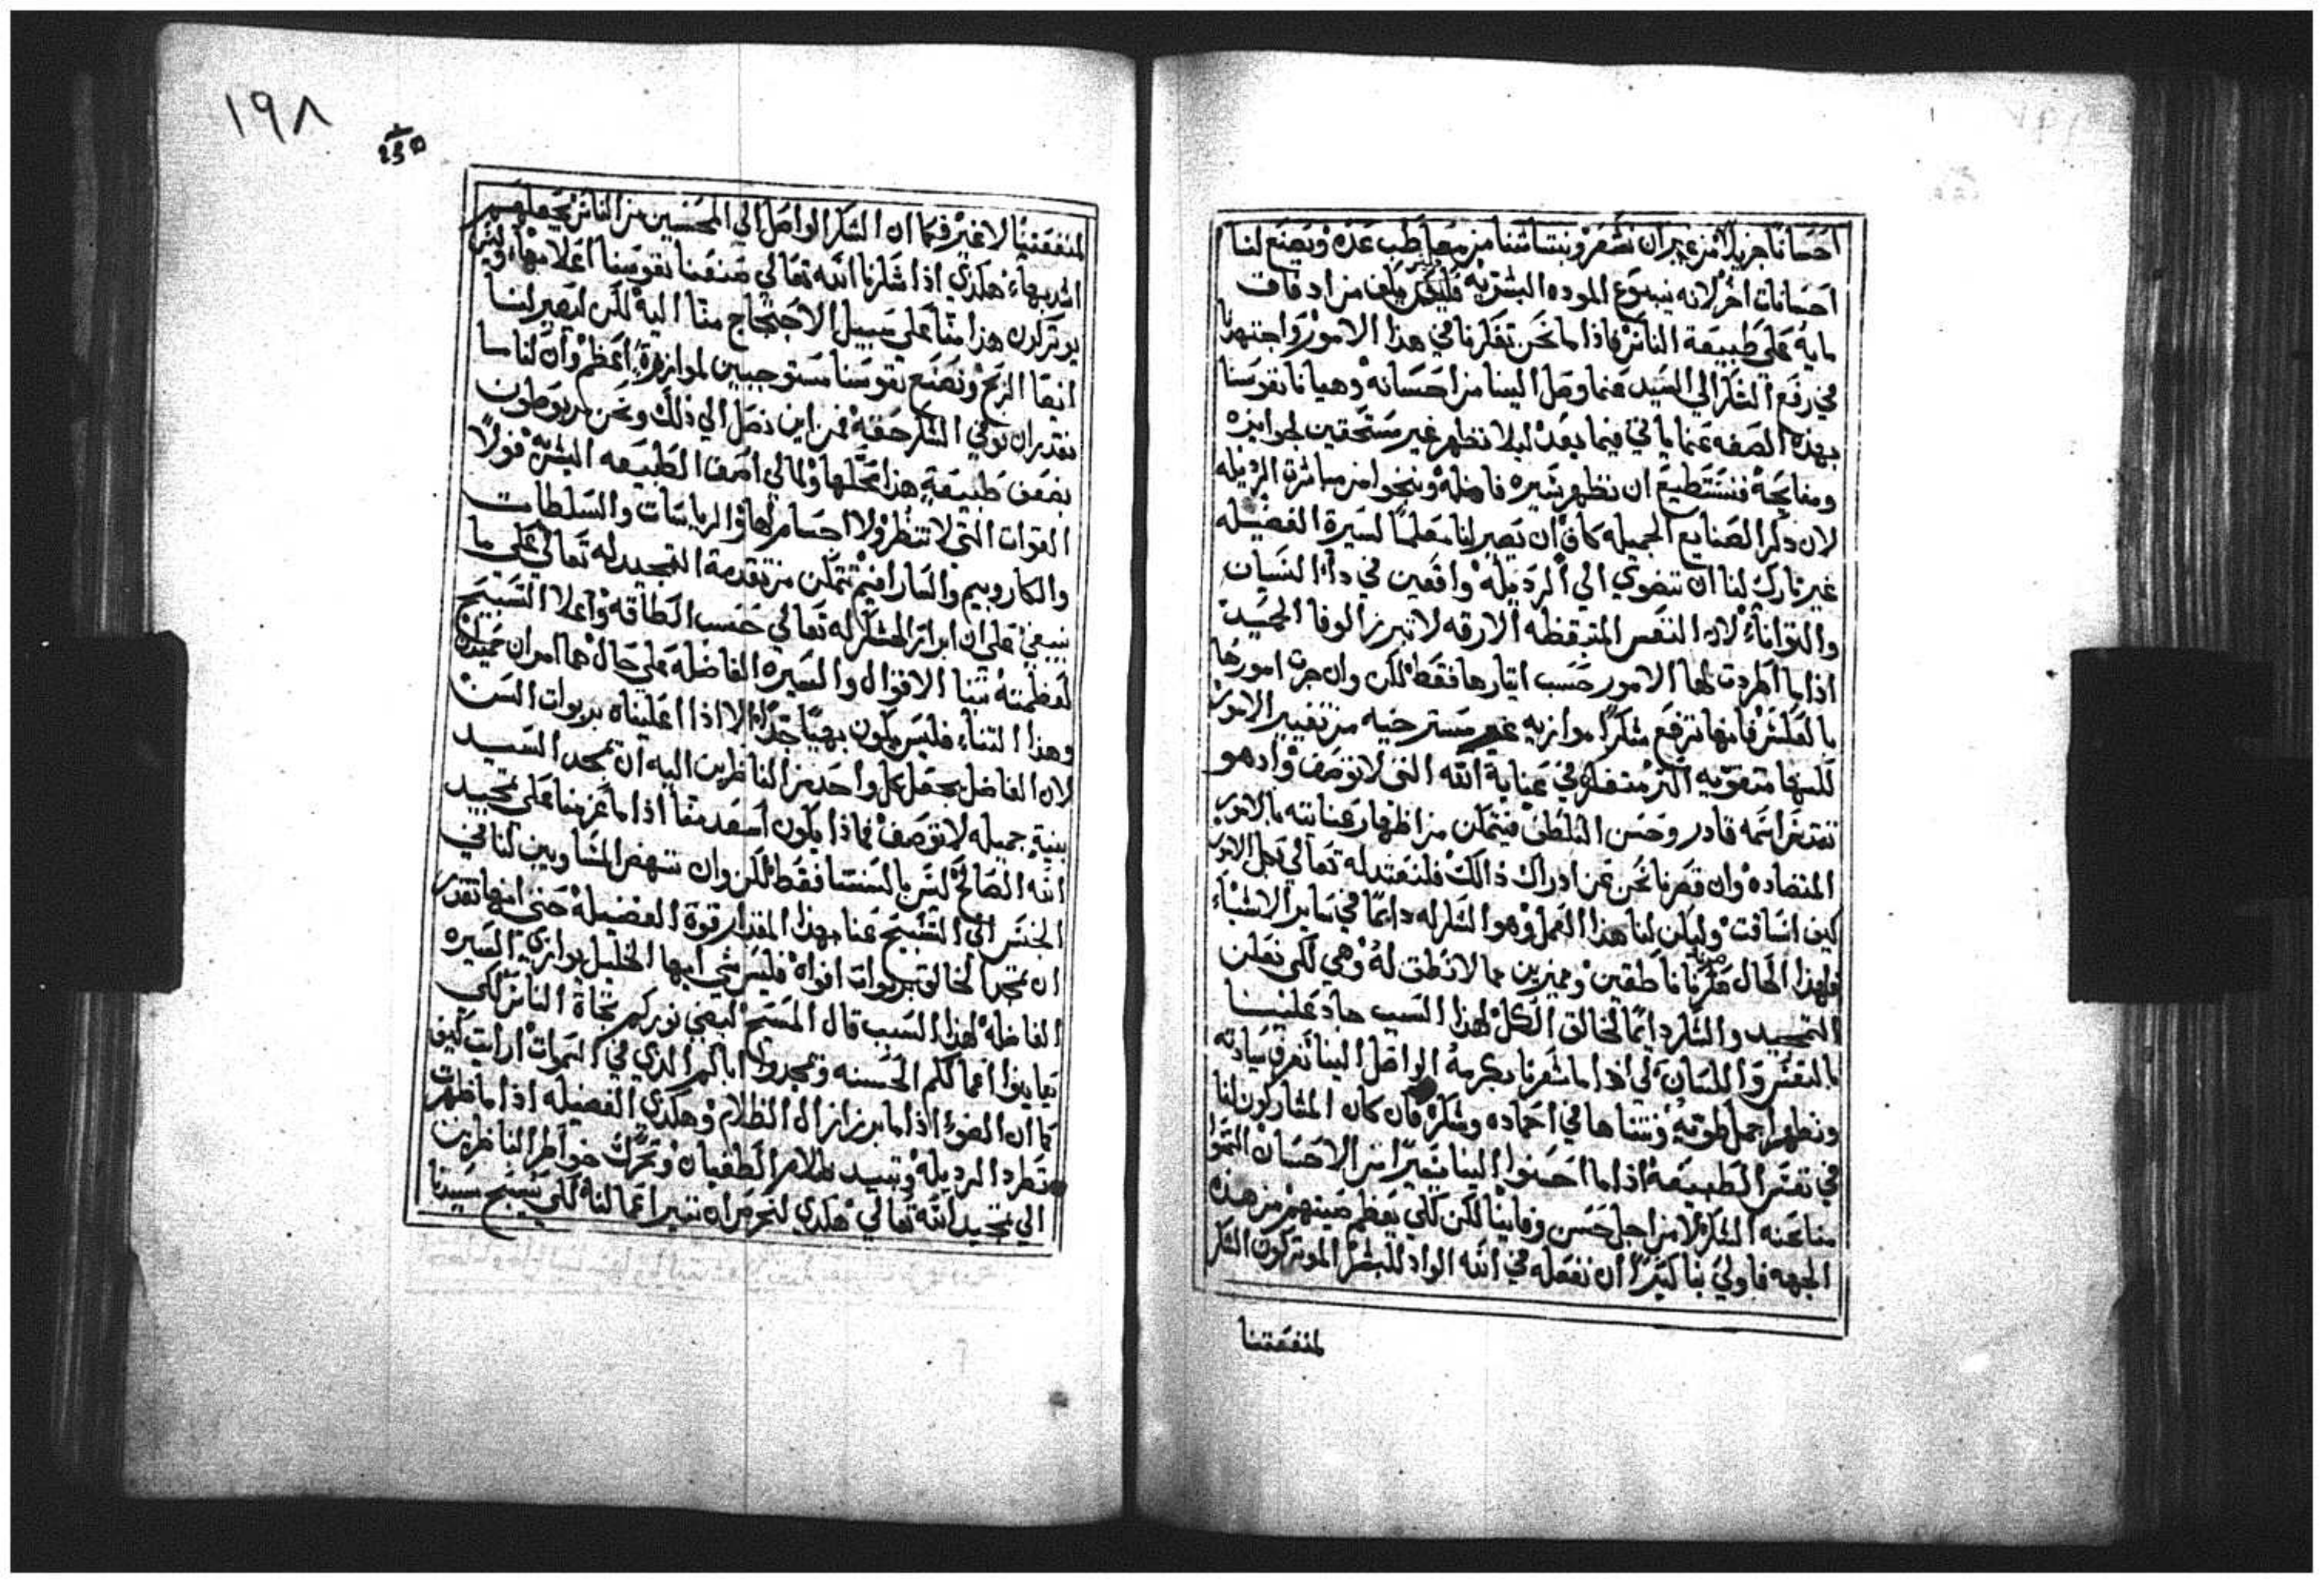 احسانًا جزيلاً من غير ان نشعر وينتاشنا من معاطب عده ويصنع لنا
احسانات اخر لانه ينبوع الموده البشريه فليكثر يلف من اد فاف
مايه على طبيعة الناس فاذا ما نحن تفكرنا في هذا الامور واجتهدنا
في رفع الشكر الي السيد عنما وصل الينا من احسانه وهيانا نفوسنا
بهذه الصفه عنما ياتي فيما بعد ليلا نظهر غير مستحقين لجوايزه
ومنايحه فنستطيع ان نظهر سيره فاضله وننجوا من مباشرة الرذيله
لان ذكر الصنايع الجميله كاف ان يصير لنا معلمًا لسيرة الفضيله
غير تارك لنا ان ننضوي الي الرذيله واقعين في داء النسيان
والتواناء لان النفس المتيقظه الارقه لا تبرز الوفا الجيد
اذا ما اطردت لها الامور حسب ايثارها فقط لكن وان جرت امورها
بالعكس فانها ترفع شكرًا موازيه غير مسترخيه من تغيير الامور
لكنها متقويه اكثر متفكره في عناية الله التي لا توصف واذ هو
تقدس اسمه قادر وحسن التلطف فيتمكن من اظهار عنايته بالامور
المتضاده وان قصرنا نحن عن ادراك ذالك فلنعتد له تعالي بكل الامور
كيف انساقت وليكن لنا هذا العمل وهو الشكر له دايمًا في ساير الاشياء
فلهذا الحال صرنا ناطقين ومميزين عما لا نطق له وهي لكي نعلن
التمجيد والشكر دايمًا لخالق الكل لهذا السبب جاد علينا
بالنفس واللسان لكي اذا ما شعرنا بكرمه الواصل الينا نعرف سيادته
ونظهر اجمل طويه وثناها في احماده وشكره فان كان المشاركون لنا
في نفس الطبيعة اذا ما احسنوا الينا يسيرًا من الاحسان التمسوا
منا عنه الشكر لا من اجل حسن وفاينا لكن لكي يعظم صيتهم من هذه
الجهه فاولي بنا كثيرًا ان نفعله في الله الواد للبشر الموثر كون الشكر
لمنفعتنا
١٩٨
لمنفعتنا لا غير فكما ان الشكر الواصل الي المحسنين من الناس يجعلهم
اشد بهاء هكذي اذا شكرنا الله تعالي صنفنا نفوسنا اعلا بهاء وليس
يوثر كون هذا منا على سبيل الاحتجاج منا اليه لكن ليصير لنا
ايضًا الربح ونصنع نفوسنا مستوجبين لموازرة اعظم وان كنا ما
نقدر ان نوفي الشكر حقه فمن اين نصل الي ذلك ونحن مربوطون
بضعف طبيعة هذا محلها وما لي اصف الطبيعه البشريه فولا
القوات التي لا تنظر ولا احسام لها والرياسات والسلطات
والكاروبيم والسارافيم تتمكن من تقدمة التمجيد له تعالي على ما
ينبغي على ان ابراز الشكر له تعالي حسب الطاقه واعلا التسبيح
لعظمته ثنا الاقوال والسيره الفاضله على حال هما امران حميدان
وهذا الثناء فليس يكون بهيًا جدًا الا اذا اعليناه بربوات السن
لان الفاضل يجعل كل واحد من الناظرين اليه ان يمجد السيد
بنية جميله لا توصف فماذا يكون اسعد منا اذا ما عزمنا على تمجيد
الله الصالح ليس بالسنتنا فقط لكن وان ننهض المشاوين لنا في
الجنس الي التسبيح عنا بهذا المقدار قوة الفضيله حتي انها تقدر
ان تمجد الخالق بربوات افواه فليس شي ايها الخليل يوازي السيره
الفاضله لهذا السبب قال المسيح ليضي نوركم تجاة الناس لكي
يعاينوا اعمالكم الحسنه ويمجدوا اباكم الذي في السموات ارايت كيف
كما ان الضوء اذا ما برز ازال الظلام وهكذي الفضيله اذا ما ظهرت
تطرد الرذيله وتبيد ظلام الطغيان وتحرك خواطر الناظرين
الي تمجيد الله تعالي هكذي لنحرص ان تنير اعمالنا لكي يسبح سيدنا